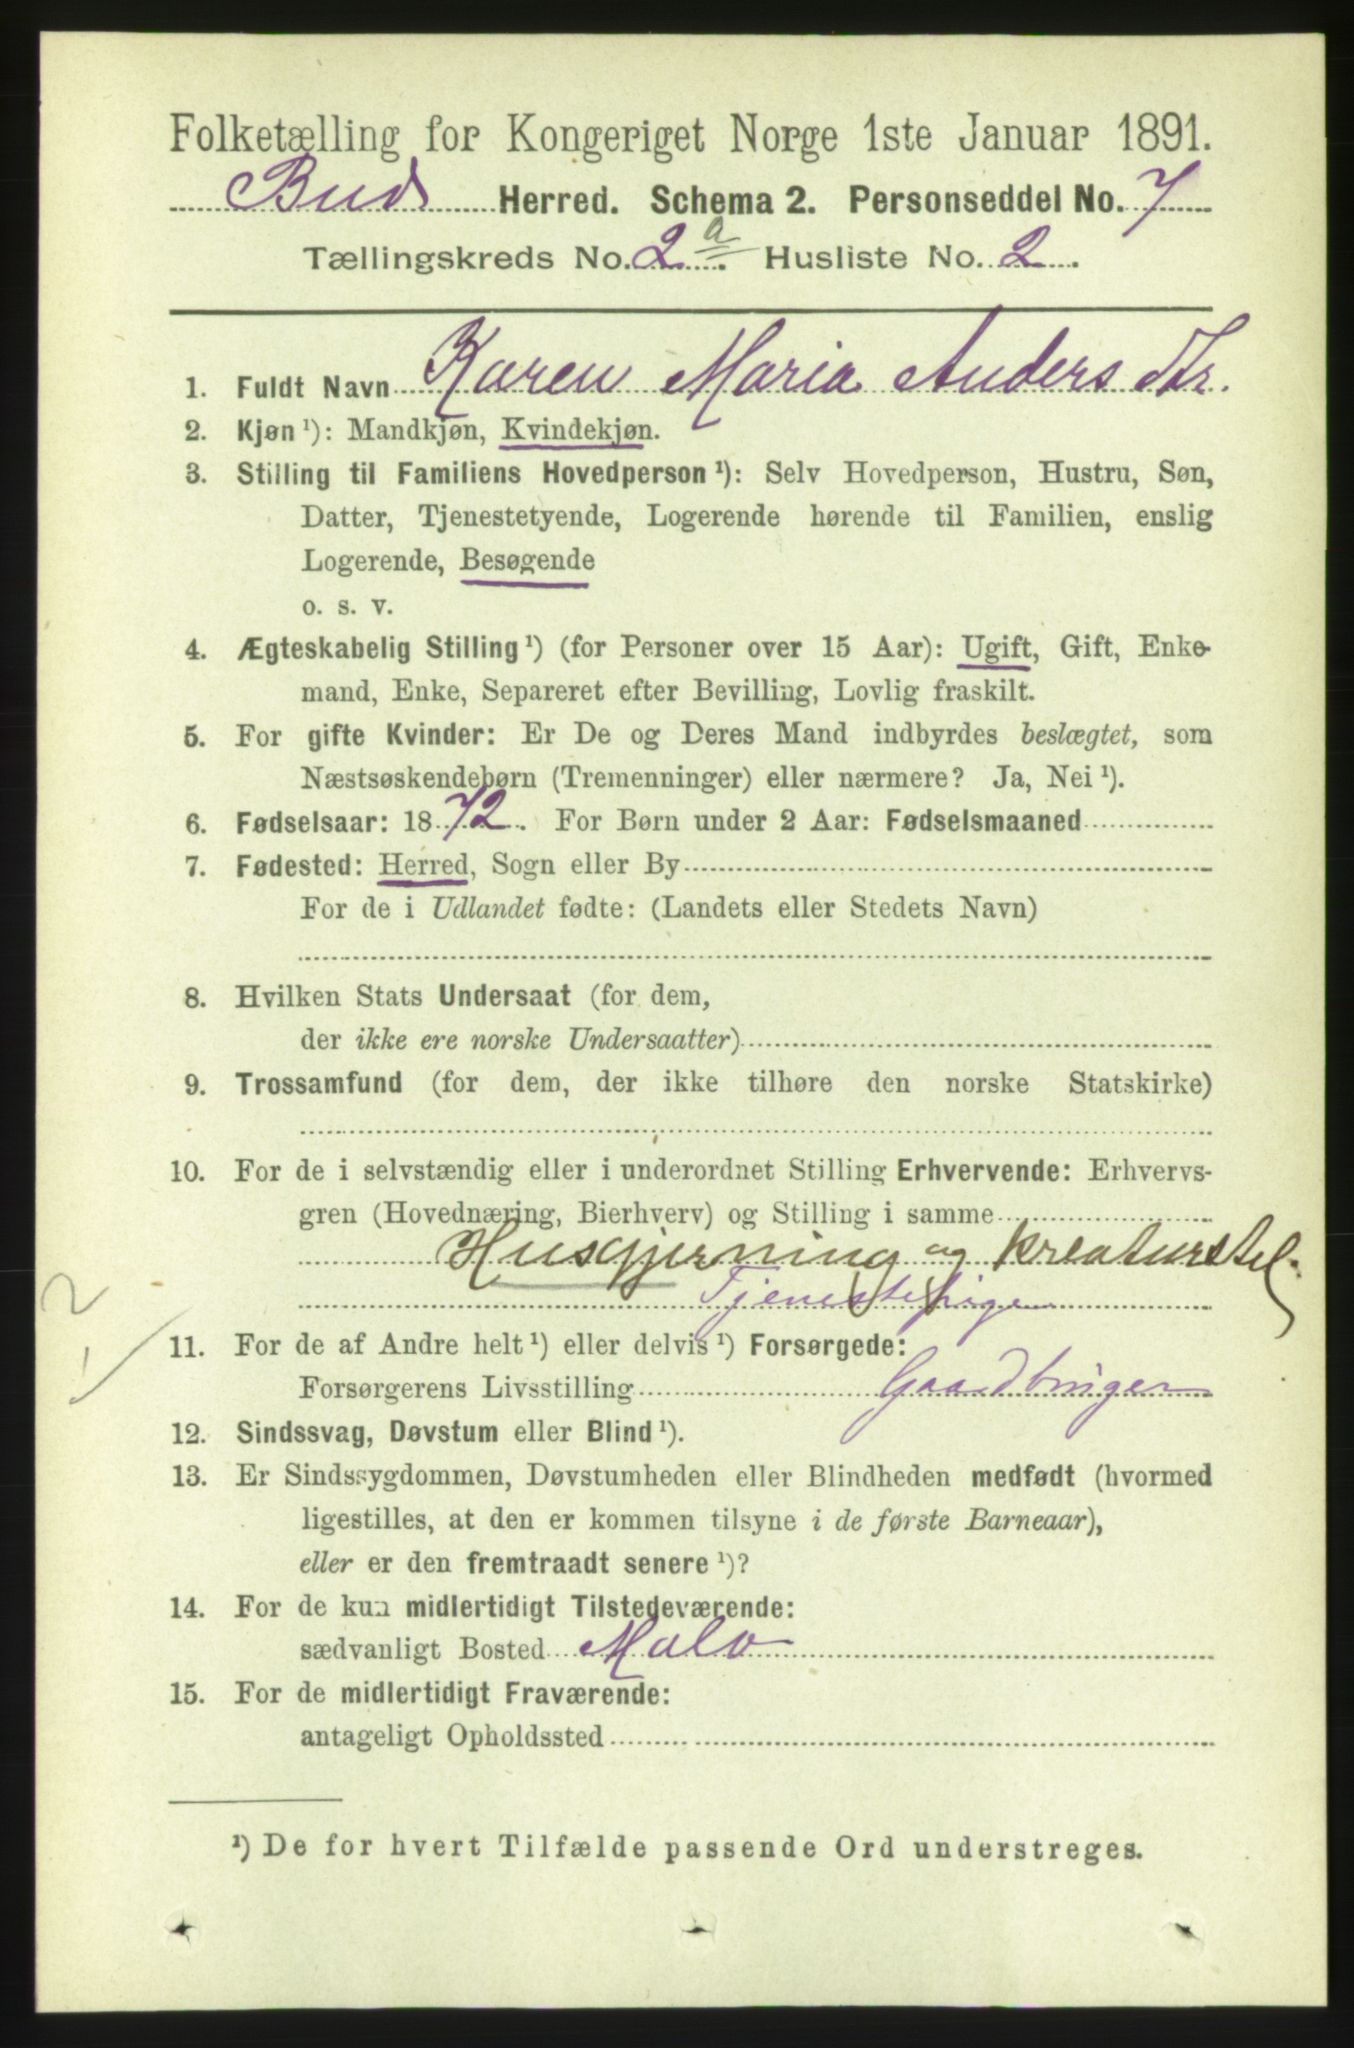 Folketælling for Kongeriget Norge 1ste Januar 1891.
Bud Herred. Schema 2. Personseddel No. 7
Tællingskreds No. 2 a. Husliste No. 2.
1. Fuldt Navn Karen Maria Anders Dtr.
2. Kjøn ¹): Mandkjøn, Kvindekjøn.
3. Stilling til Familiens Hovedperson ¹): Selv Hovedperson, Hustru, Søn,
Datter, Tjenestetyende, Logerende hørende til Familien, enslig
Logerende, Besøgende
o. s. v.
4. Ægteskabelig Stilling ¹) (for Personer over 15 Aar): Ugift, Gift, Enke-
mand, Enke, Separeret efter Bevilling, Lovlig fraskilt.
5. For gifte Kvinder: Er De og Deres Mand indbyrdes beslægtet, som
Næstsøskendebørn (Tremenninger) eller nærmere? Ja, Nei ¹).
6. Fødselsaar: 1872. For Børn under 2 Aar: Fødselsmaaned
7. Fødested: Herred, Sogn eller By
For de i Udlandet fødte: (Landets eller Stedets Navn)
8. Hvilken Stats Undersaat (for dem,
der ikke ere norske Undersaatter)
9. Trossamfund (for dem, der ikke tilhøre den norske Statskirke)
10. For de i selvstændig eller i underordnet Stilling Erhvervende: Erhvervs-
gren (Hovednæring, Bierhverv) og Stilling i samme
Husgjerning og kreaturstel.
Tjenestepige
11. For de af Andre helt ¹) eller delvis ¹) Forsørgede:
Forsørgerens Livsstilling Gaardbruger
12. Sindssvag, Døvstum eller Blind ¹).
13. Er Sindssygdommen, Døvstumheden eller Blindheden medfødt (hvormed
ligestilles, at den er kommen tilsyne i de første Barneaar),
eller er den fremtraadt senere ¹)?
14. For de kun midlertidigt Tilstedeværende:
sædvanligt Bosted Malo
15. For de midlertidigt Fraværende:
antageligt Opholdssted
¹) De for hvert Tilfælde passende Ord understreges.